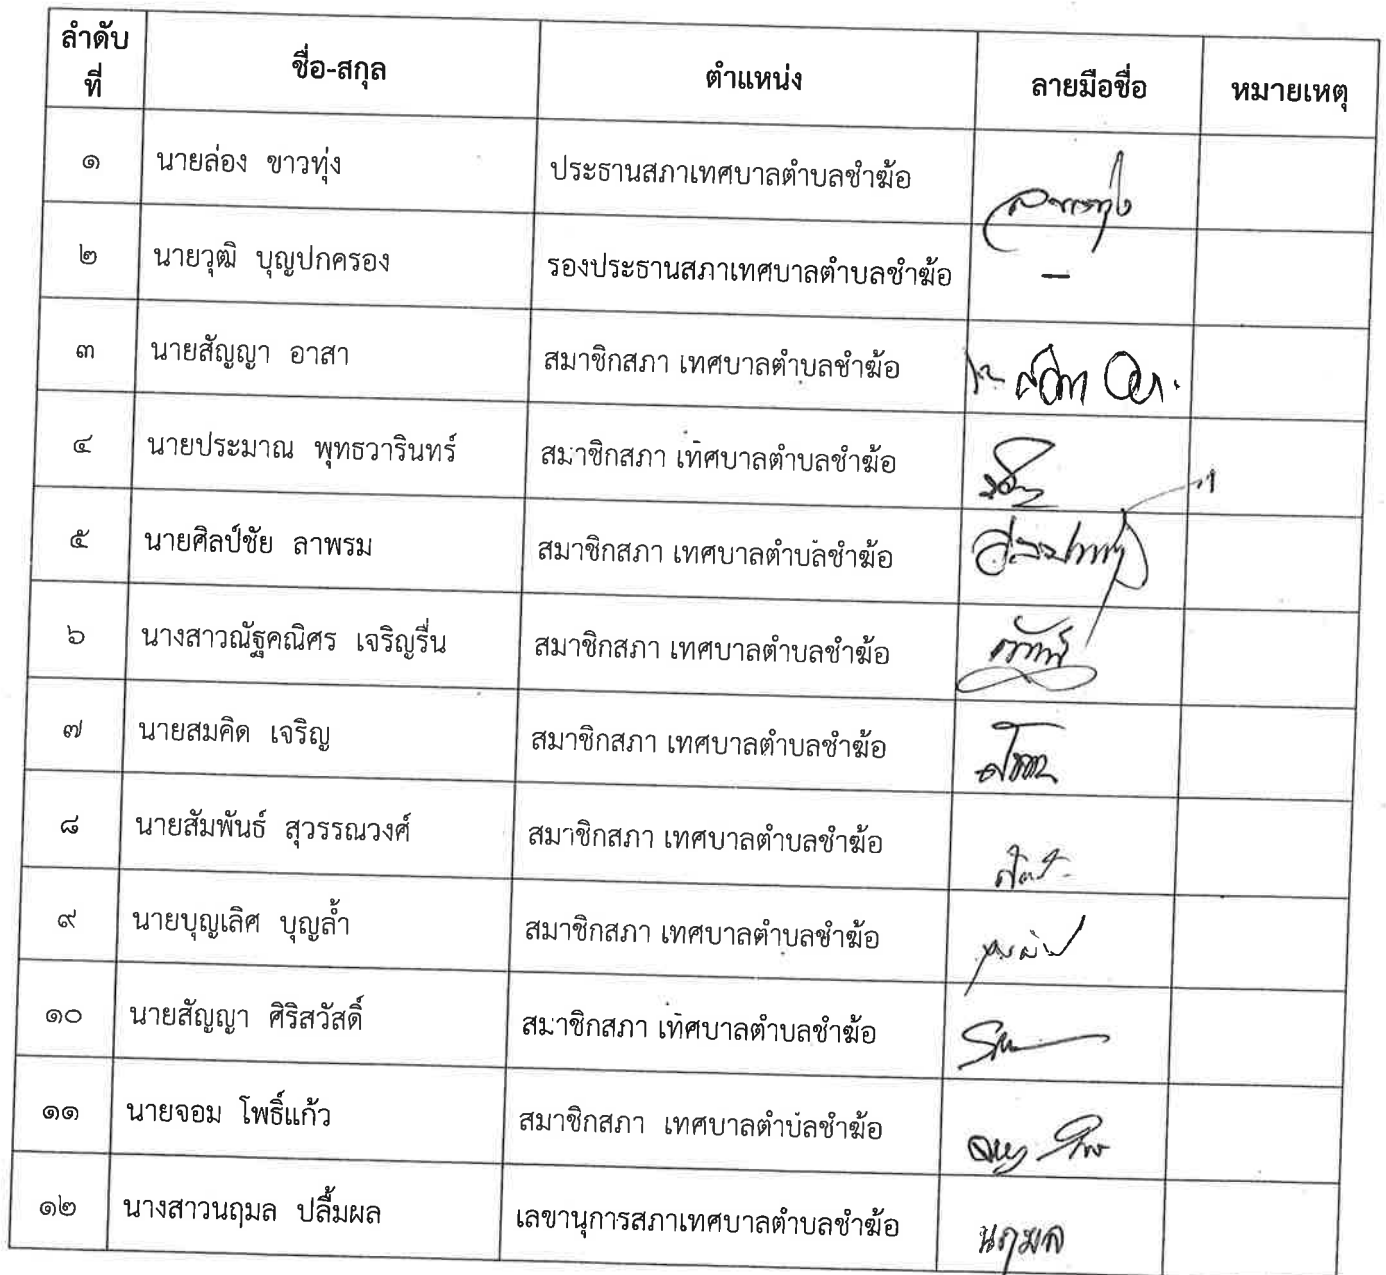 ลำดับที่ ชื่อ-สกุล ตำแหน่ง ลายมือชื่อ หมายเหตุ
๑ นายล่อง ขาวทุ่ง ประธานสภาเทศบาลตำบลชำฆ้อ
๒ นายวุฒิ บุญปกครอง รองประธานสภาเทศบาลตำบลชำฆ้อ -
๓ นายสัญญา อาสา สมาชิกสภา เทศบาลตำบลชำฆ้อ
๔ นายประมาณ พุทธวารินทร์ สมาชิกสภา เทศบาลตำบลชำฆ้อ
๕ นายศิลป์ชัย ลาพรม สมาชิกสภา เทศบาลตำบลชำฆ้อ
๖ นางสาวณัฐคณิศร เจริญรื่น สมาชิกสภา เทศบาลตำบลชำฆ้อ
๗ นายสมคิด เจริญ สมาชิกสภา เทศบาลตำบลชำฆ้อ
๘ นายสัมพันธ์ สุวรรณวงศ์ สมาชิกสภา เทศบาลตำบลชำฆ้อ
๙ นายบุญเลิศ บุญล้ำ สมาชิกสภา เทศบาลตำบลชำฆ้อ
๑๐ นายสัญญา ศิริสวัสดิ์ สมาชิกสภา เทศบาลตำบลชำฆ้อ
๑๑ นายจอม โพธิ์แก้ว สมาชิกสภา เทศบาลตำบลชำฆ้อ
๑๒ นางสาวนฤมล ปลื้มผล เลขานุการสภาเทศบาลตำบลชำฆ้อ นฤมล